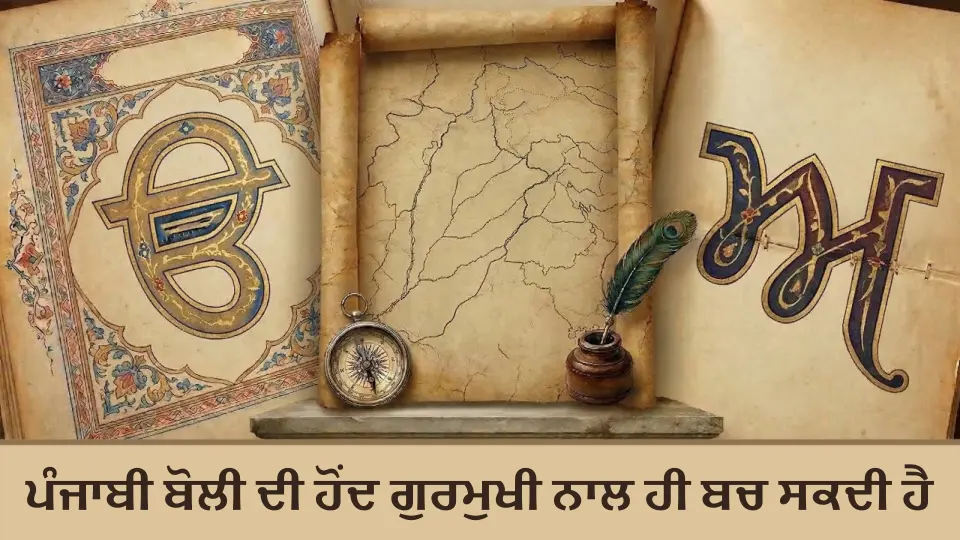 ੳ
ਅ
ਪੰਜਾਬੀ ਬੋਲੀ ਦੀ ਹੋਂਦ ਗੁਰਮੁਖੀ ਨਾਲ ਹੀ ਬਚ ਸਕਦੀ ਹੈ